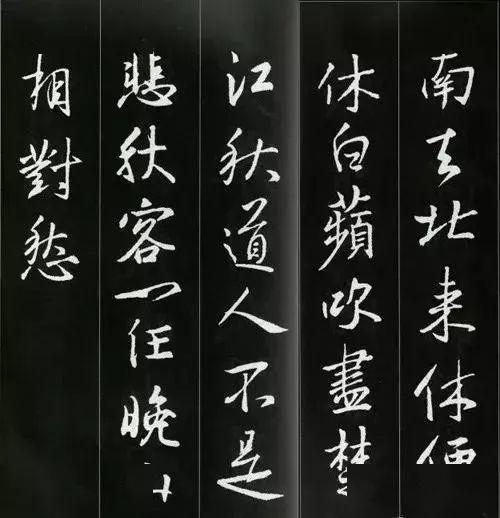 南去北来休便
休白蘋吹盡楚
江秋道人不是
悲秋客一任晚
相對愁